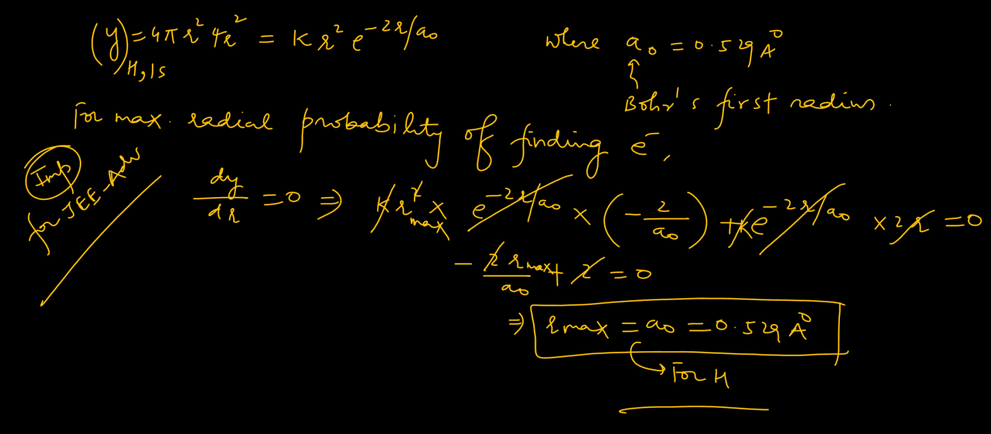 (y)_{H,1s} = 4πr² Ψr² = K r² e^{-2r/a₀} where a₀ = 0.529 A⁰
Bohr's first radius.
For max. radial probability of finding e⁻,
Imp
for JEE-Adv
dy/dr = 0 ⇒ K r²_{max} × e^{-2r/a₀} × (-2/a₀) + K e^{-2r/a₀} × 2r = 0
- 2 r_{max}/a₀ + 2 = 0
⇒ r_{max} = a₀ = 0.529 A⁰
→ For H